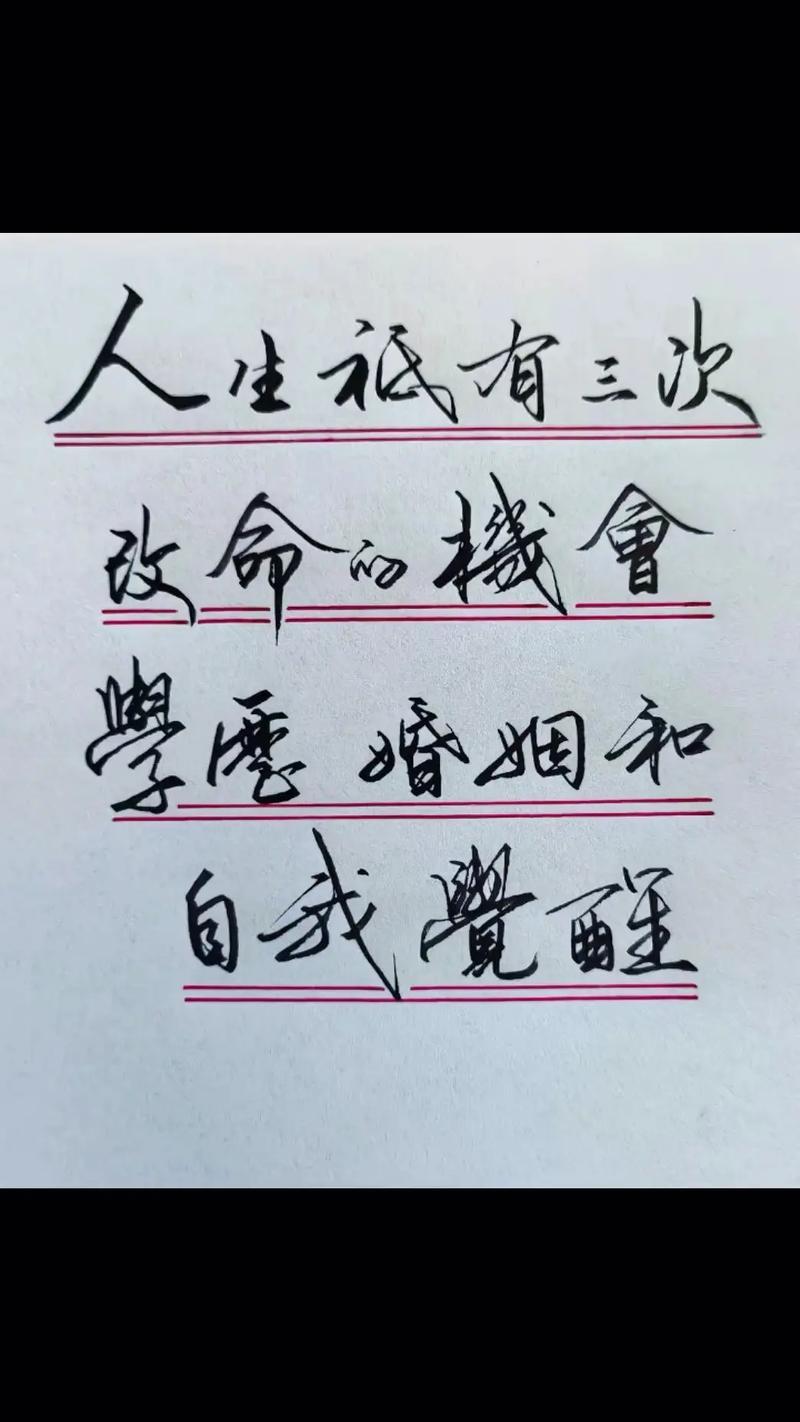 人生祇有三次
改命的機會
學歷 婚姻和
自我覺醒